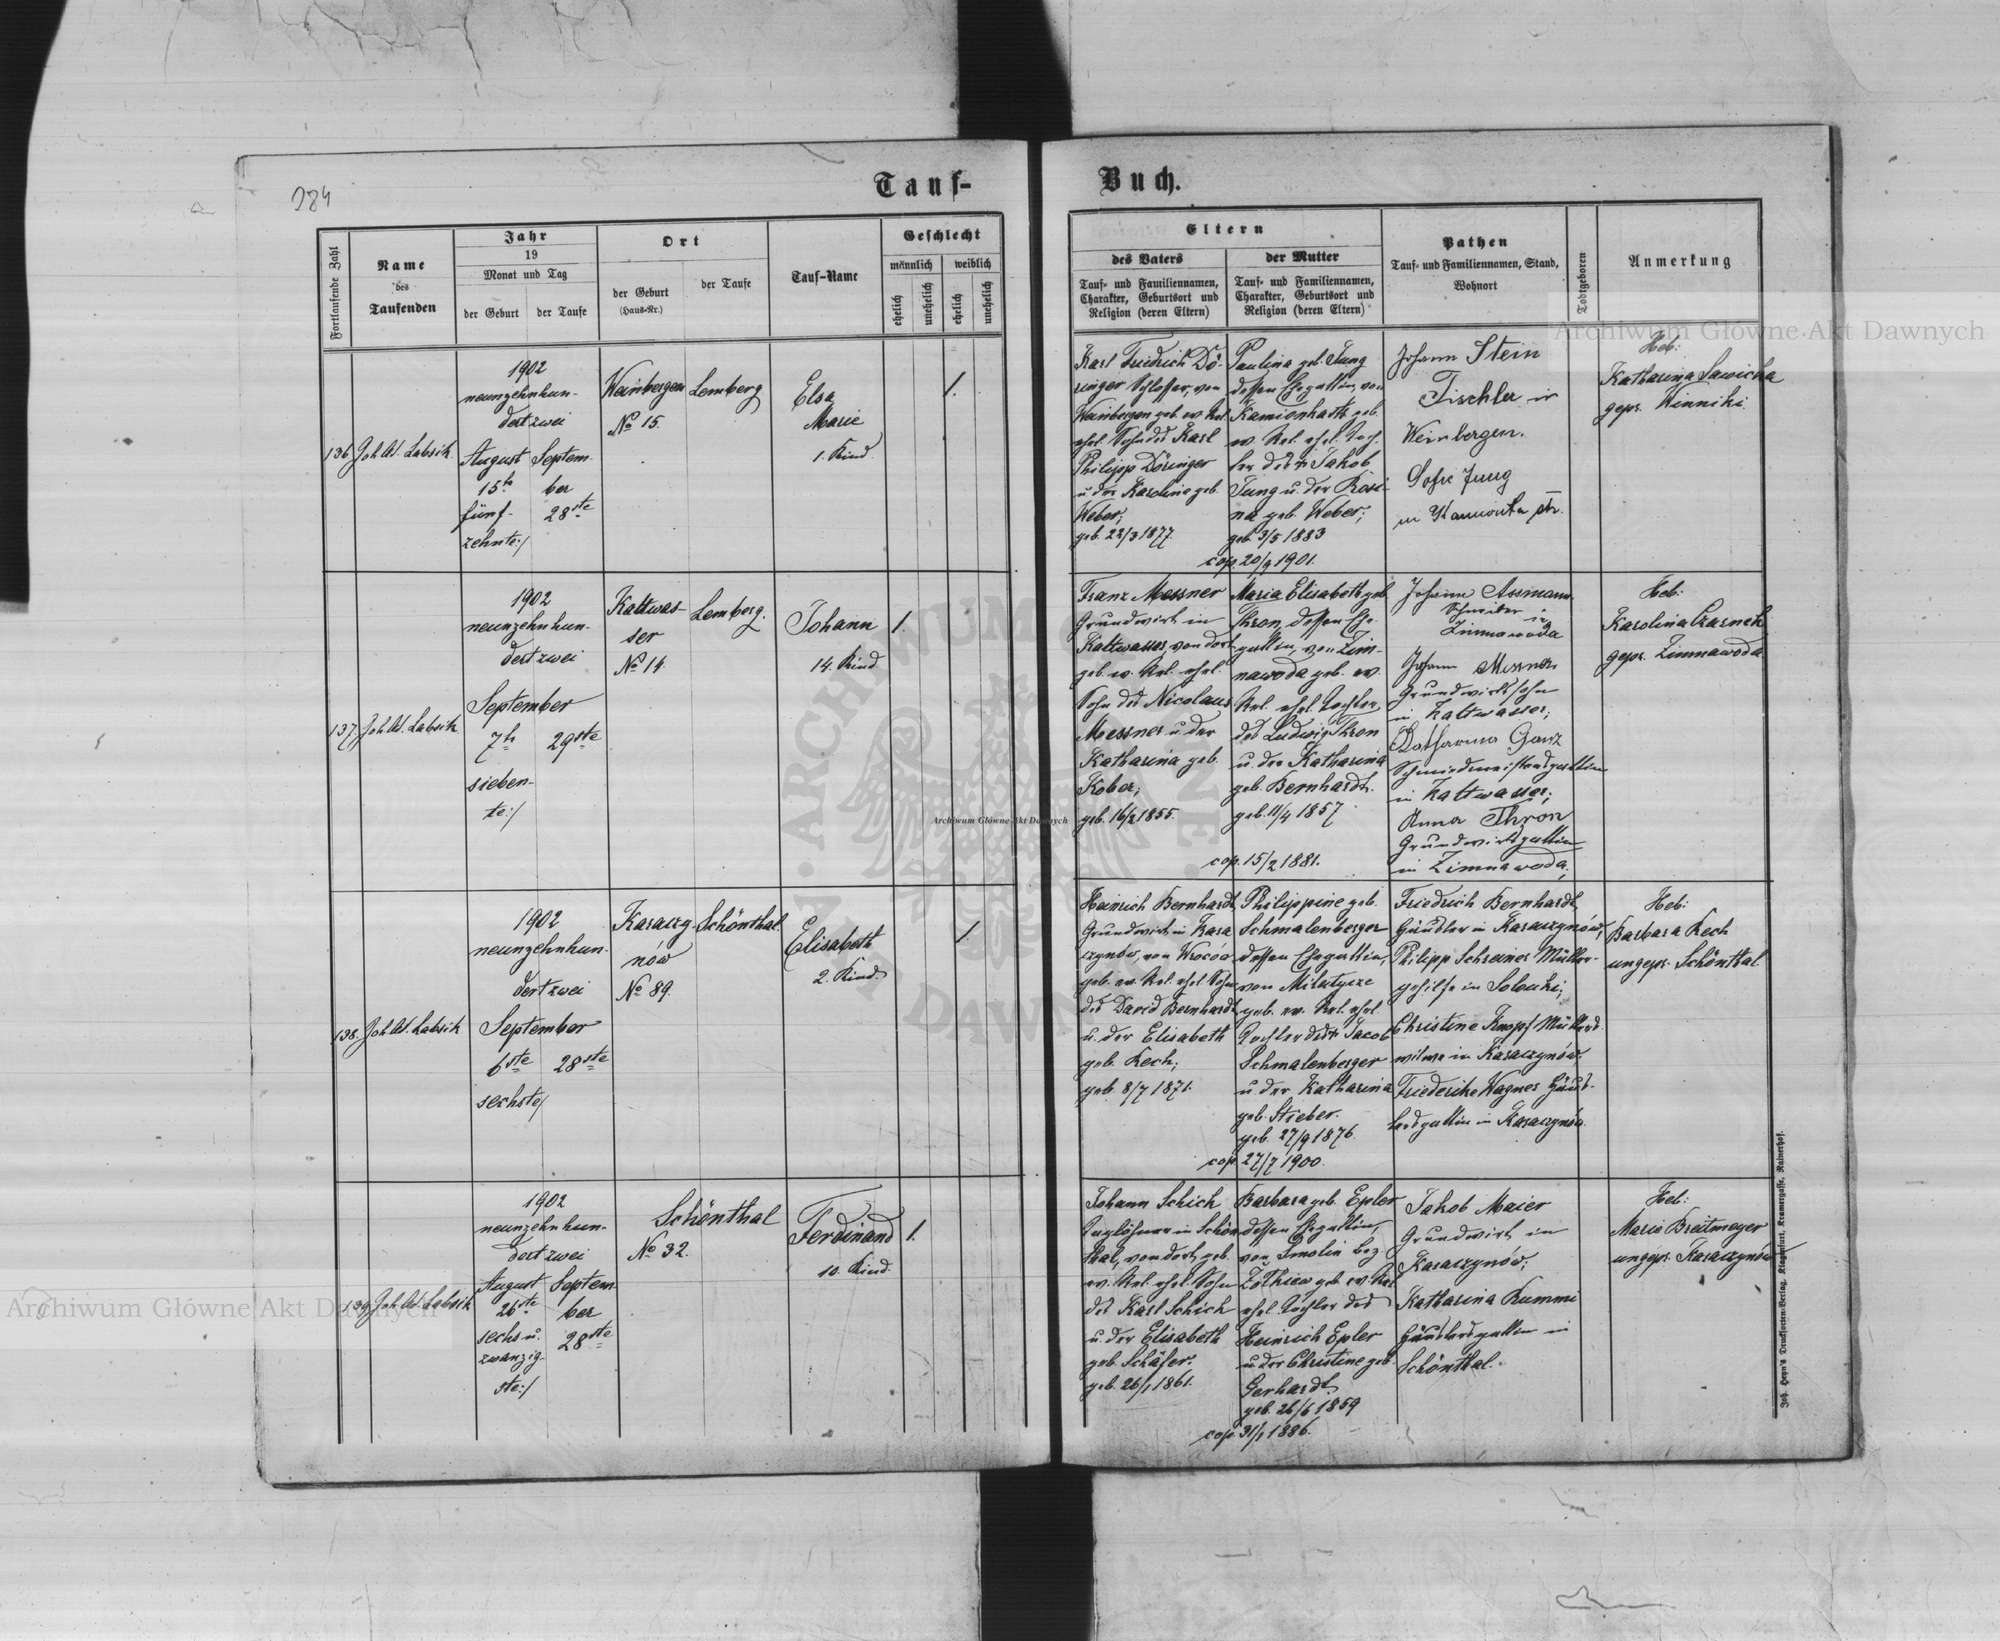 284
Tauf-
Buch.
Fortlaufende Zahl
Name
des
Taufenden
Jahr
19
Monat und Tag
der Geburt
der Taufe
Ort
der Geburt
(Haus-Nr.)
der Taufe
Tauf-Name
Geschlecht
männlich
weiblich
ehelich
unehelich
ehelich
unehelich
Eltern
des Vaters
Tauf- und Familiennamen,
Charakter, Geburtsort und
Religion (deren Eltern)
der Mutter
Tauf- und Familiennamen,
Charakter, Geburtsort und
Religion (deren Eltern)
Pathen
Tauf- und Familiennamen, Stand,
Wohnort
Todtgeboren
Anmerkung
136
Joh. W. Labsik
1902
neunzehnhun-
dertzwei
August
15te
fünf-
zehnte:/
Septem-
ber
28ste
Weinbergen
No 15.
Lemberg
Elsa
Marie
1. Kind
1.
Karl Friedrich Dö-
ringer Schlosser, von
Weinbergen geb. ev. Rel.
ehel. Sohn des Karl
Philipp Döringer
u. der Karoline geb.
Weber;
geb. 22/3 1877.
Paulina geb. Jung
dessen Ehegattin, von
geb.
ev. Rel. ehel. Toch-
ter des Jakob
Jung u. der Rosi-
na geb. Weber;
geb. 3/5 1883
cop. 20/9 1901.
Johann Stein
Tischler in
Weinbergen.
Sofie Jung
in
Heb:
Katharina Sawicka
gepr. Winniki
137.
Joh. W. Labsik
1902
neunzehnhun-
dertzwei
September
7te
sieben-
te:/
29ste
Kaltwas-
ser
No 14.
Lemberg.
Johann
14. Kind
1.
Franz Messner
Grundwirt in
Kaltwasser, von dort
geb. ev. Rel. ehel.
Sohn des Nicolaus
Messner u. der
Katharina geb.
Kober;
geb. 16/2 1855.
Maria Elisabeth geb.
Thron, dessen Ehe-
gattin, von Zim-
nawoda geb. ev.
Rel. ehel. Tochter
des Ludwig Thron
u. der Katharina
geb. Bernhardt.
geb. 11/4 1857
cop. 15/2 1881.
Johann Assmann
in
Zimnawoda
Johann Messner
Grundwirtssohn
in Kaltwasser;
Katharina Ganz
Schmiedmeistersgattin
in Kaltwasser;
Anna Thron
Grundwirtsgattin
in Zimnawoda.
Heb:
Karolina Czarnek
gepr. Zimnawoda
138.
Joh. W. Labsik
1902
neunzehnhun-
dertzwei
September
6ste
sechste/
28ste
Karaczy-
nów
No 89.
Schönthal
Elisabeth
2. Kind
1.
Heinrich Bernhardt
Grundwirt in Kara
czynów, von Wroców
geb. ev. Rel. ehel. Sohn
des David Bernhardt
u. der Elisabeth
geb. Kech;
geb. 8/7 1871.
Philippine geb.
Schmalenberger
dessen Ehegattin,
von
geb. ev. Rel. ehel.
Tochter des Jacob
Schmalenberger
u. der Katharina
geb. Stieber.
geb. 27/9 1876.
cop. 27/7 1900.
Friedrich Bernhardt,
Häusler in Karaczynów,
Philipp Schreiner Müller-
gehilfe in
Christine Knopf Müllers-
witwe in Karaczynów,
Friederike Wagner Häus-
lersgattin in Karaczynów.
Heb:
Barbara Kech
ungepr. Schönthal
139.
Joh. W. Labsik
1902
neunzehnhun-
dertzwei
August
26ste
sechs u.
zwanzig-
ste:/
Septem-
ber
28ste
Schönthal
No 32.
Ferdinand
10. Kind.
1.
Johann Schick
Taglöhner in Schön
thal, von dort geb.
ev. Rel. ehel. Sohn
des Karl Schick
u. der Elisabeth
geb. Schäfer.
geb. 26/1 1861.
Barbara geb. Epler
dessen Ehegattin,
von Smolin bez.
Żółkiew geb. ev. Rel.
ehel. Tochter des
Heinrich Epler
u. der Christine geb.
Gerhardt
geb. 26/6 1859
cop. 31/1 1886.
Jakob Maier
Grundwirt in
Karaczynów;
Katharina Kummi
Häuslersgattin in
Schönthal.
Heb:
Marie Breitmeyer
ungepr. Karaczynów
Joh. Heyn's Drucksorten-Verlag, Klagenfurt, Kramergasse, Rainerhof.
Archiwum Główne Akt Dawnych
Archiwum Główne Akt Dawnych
Archiwum Główne Akt Dawnych